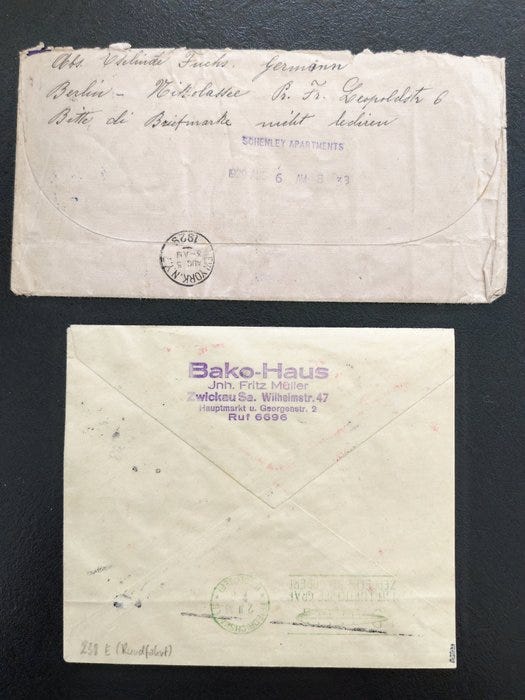 Abs. Fuchs. Germann
Berlin - Nikolassee Pr. Fr. Leopoldstr 6
Bitte di Briefmarke nicht
SCHENLEY APARTMENTS
1929 AUG 6 AM 8 23
NEW YORK, N.Y.
AUG 5
1929
Bako-Haus
Jnh. Fritz Müller
Zwickau Sa. Wilhelmstr. 47
Hauptmarkt u. Georgenstr. 2
Ruf 6696
LUFTSCHIFF GRAF
238 E (Rundfahrt)